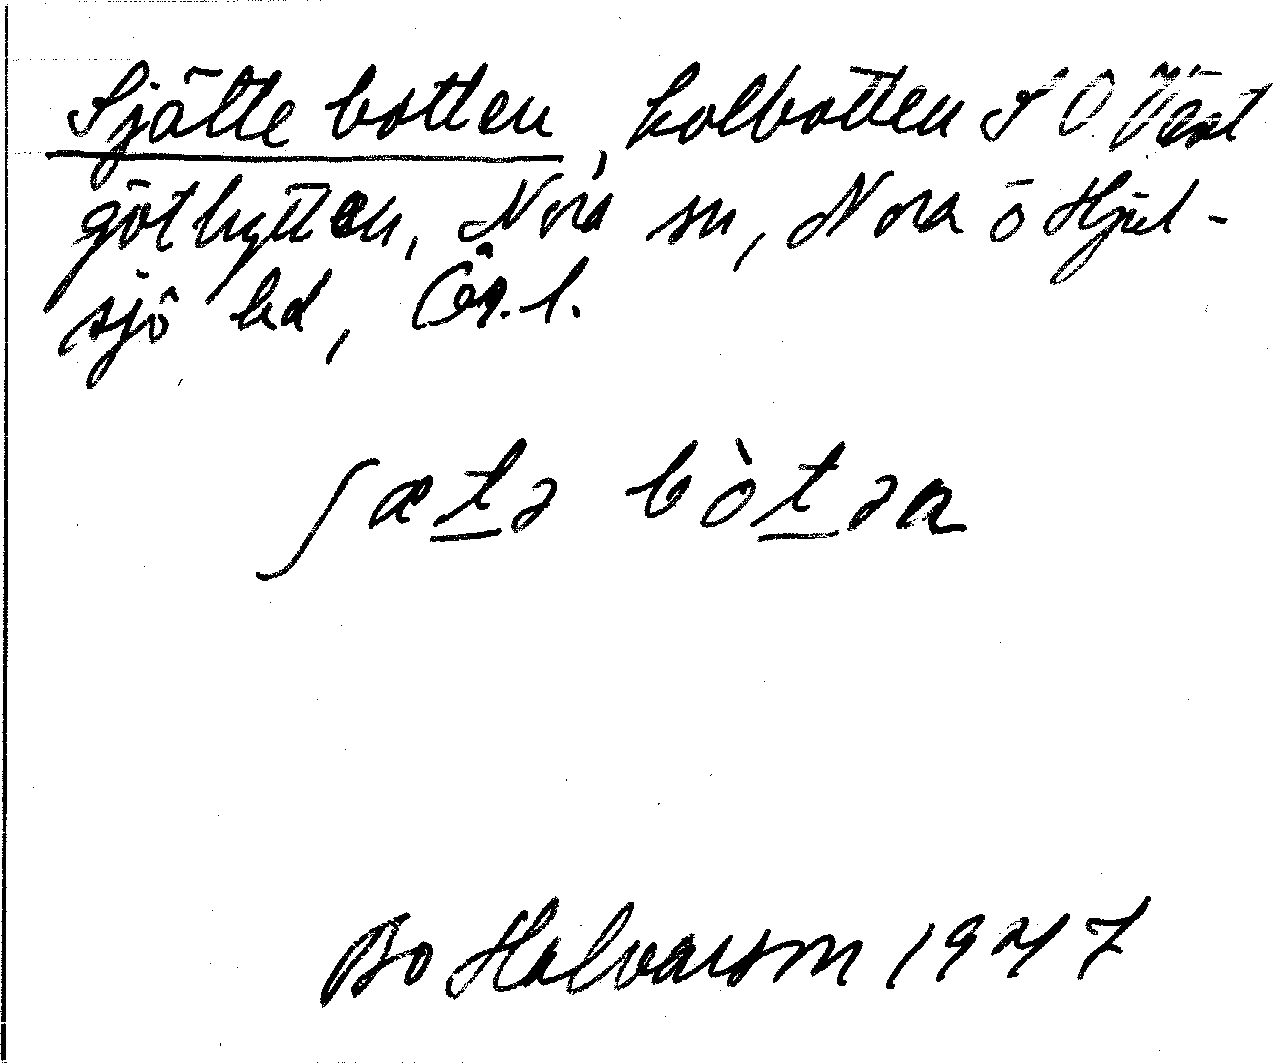 Sjätte botten, kolbotten S O Väst
göthyttan, Nora sn, Nora o Hjul-
sjö bd, Ör. l.
ʃæt̲ə bòt̲ən
Bo Halvarson 1947